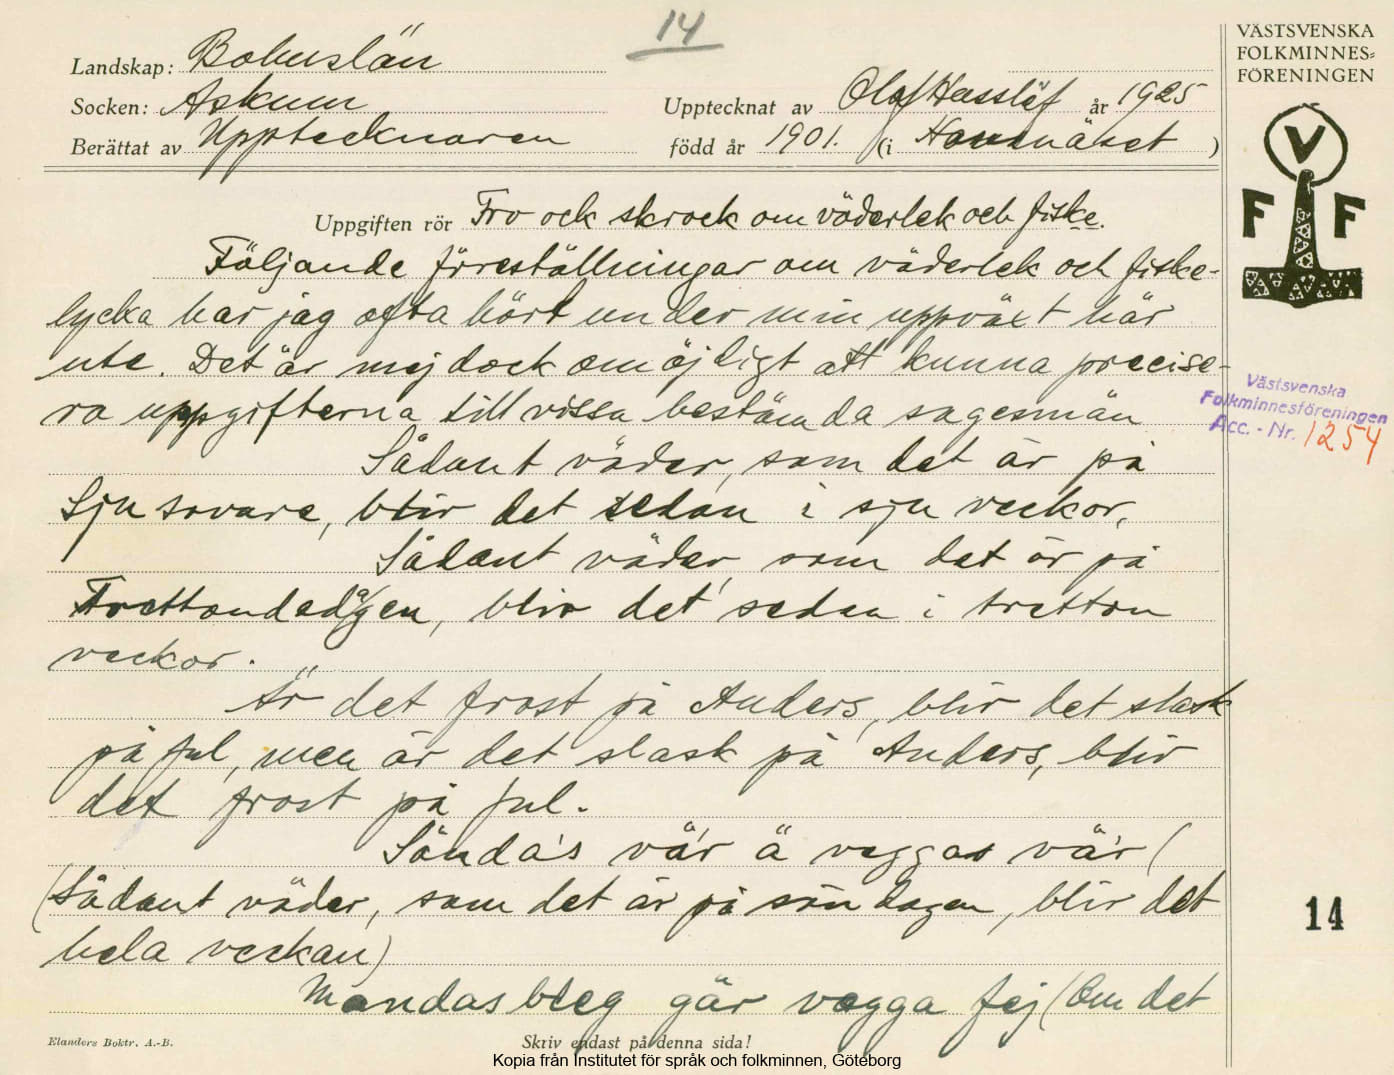 14
VÄSTSVENSKA
FOLKMINNES=
FÖRENINGEN
Landskap: Bohuslän
Socken: Askum
Upptecknat av Olof Hasslöf år 1925
Berättat av Upptecknaren
född år 1901. (i Hovenäset)
V
F F
Uppgiften rör Tro ock skrock om väderlek och fiske.
Följande föreställningar om väderlek och fiske-
lycka har jag ofta hört under min uppväxt här
ute. Det är mej dock omöjligt att kunna precise-
ra uppgifterna till vissa bestämda sagesmän
Västsvenska
Folkminnesföreningen
Acc. - Nr. 1254
Sådant väder, som det är på
Sju sovare, blir det sedan i sju veckor.
Sådant väder som det är på
Trettondedagen, blir det sedan i tretton
veckor.
Är det frost på Anders, blir det slask
på jul, men är det slask på Anders, blir
det frost på jul.
Sönda's vä'r ä veggas vä'r (
(Sådant väder, som det är på söndagen, blir det
hela veckan)
14
Mandas bleg gär vegga fej (Om det
Elanders Boktr. A.-B.
Skriv endast på denna sida!
Kopia från Institutet för språk och folkminnen, Göteborg